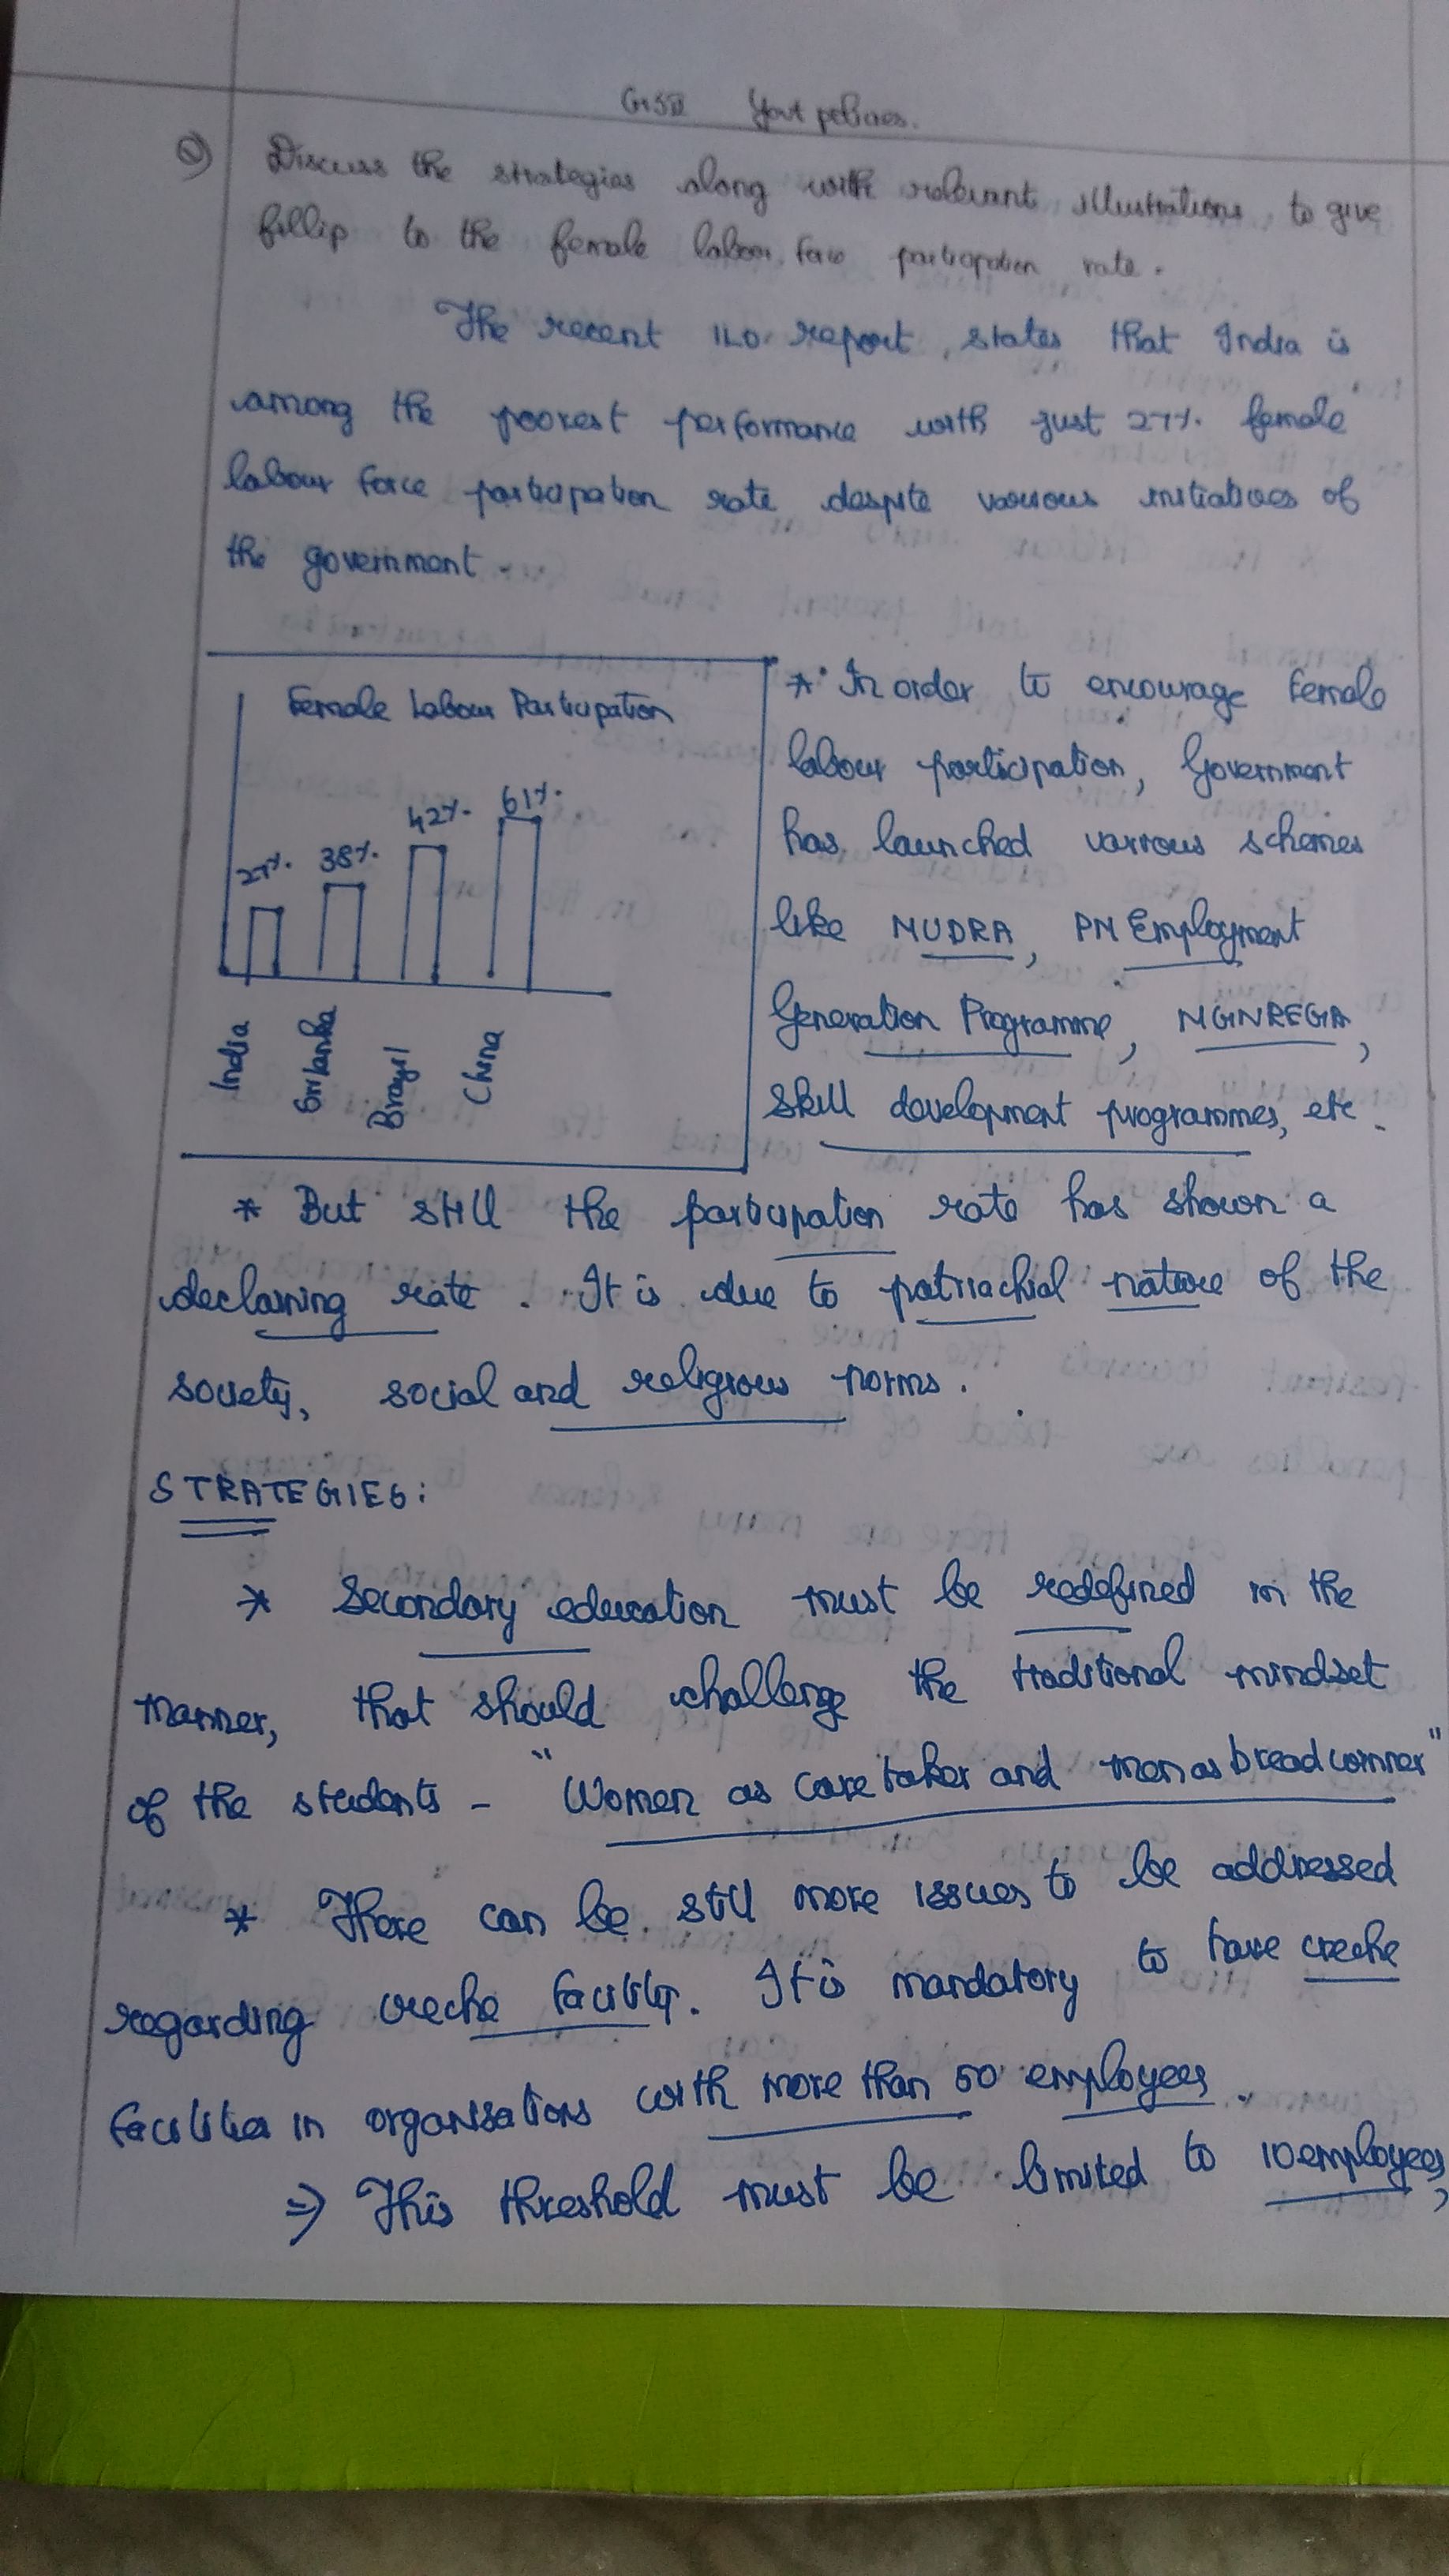 GSII Govt policies.
Q) Discuss the strategies along with relevant illustrations to give
fillip to the female labour force participation rate.
The recent ILO report, states that India is
among the poorest performance with just 27% female
labour force participation rate despite various initiatives of
the government.
Female Labour Participation
27% 38% 42% 61%
India Srilanka Brazil China
* In order to encourage female
labour participation, Government
has launched various schemes
like MUDRA, PM Employment
Generation Programme, MGNREGA,
skill development programmes, etc.
* But still the participation rate has shown a
declaining rate. It is due to patriachial nature of the
society, social and religious norms.
STRATEGIES:
* Secondary education must be redefined in the
manner, that should challenge the traditional mindset
of the students - "Women as care taker and men as breadwinner"
* There can be still more issues to be addressed
regarding creche facility. It is mandatory to have creche
facilities in organisations with more than 50 employees.
⇒ This threshold must be limited to 10 employees,